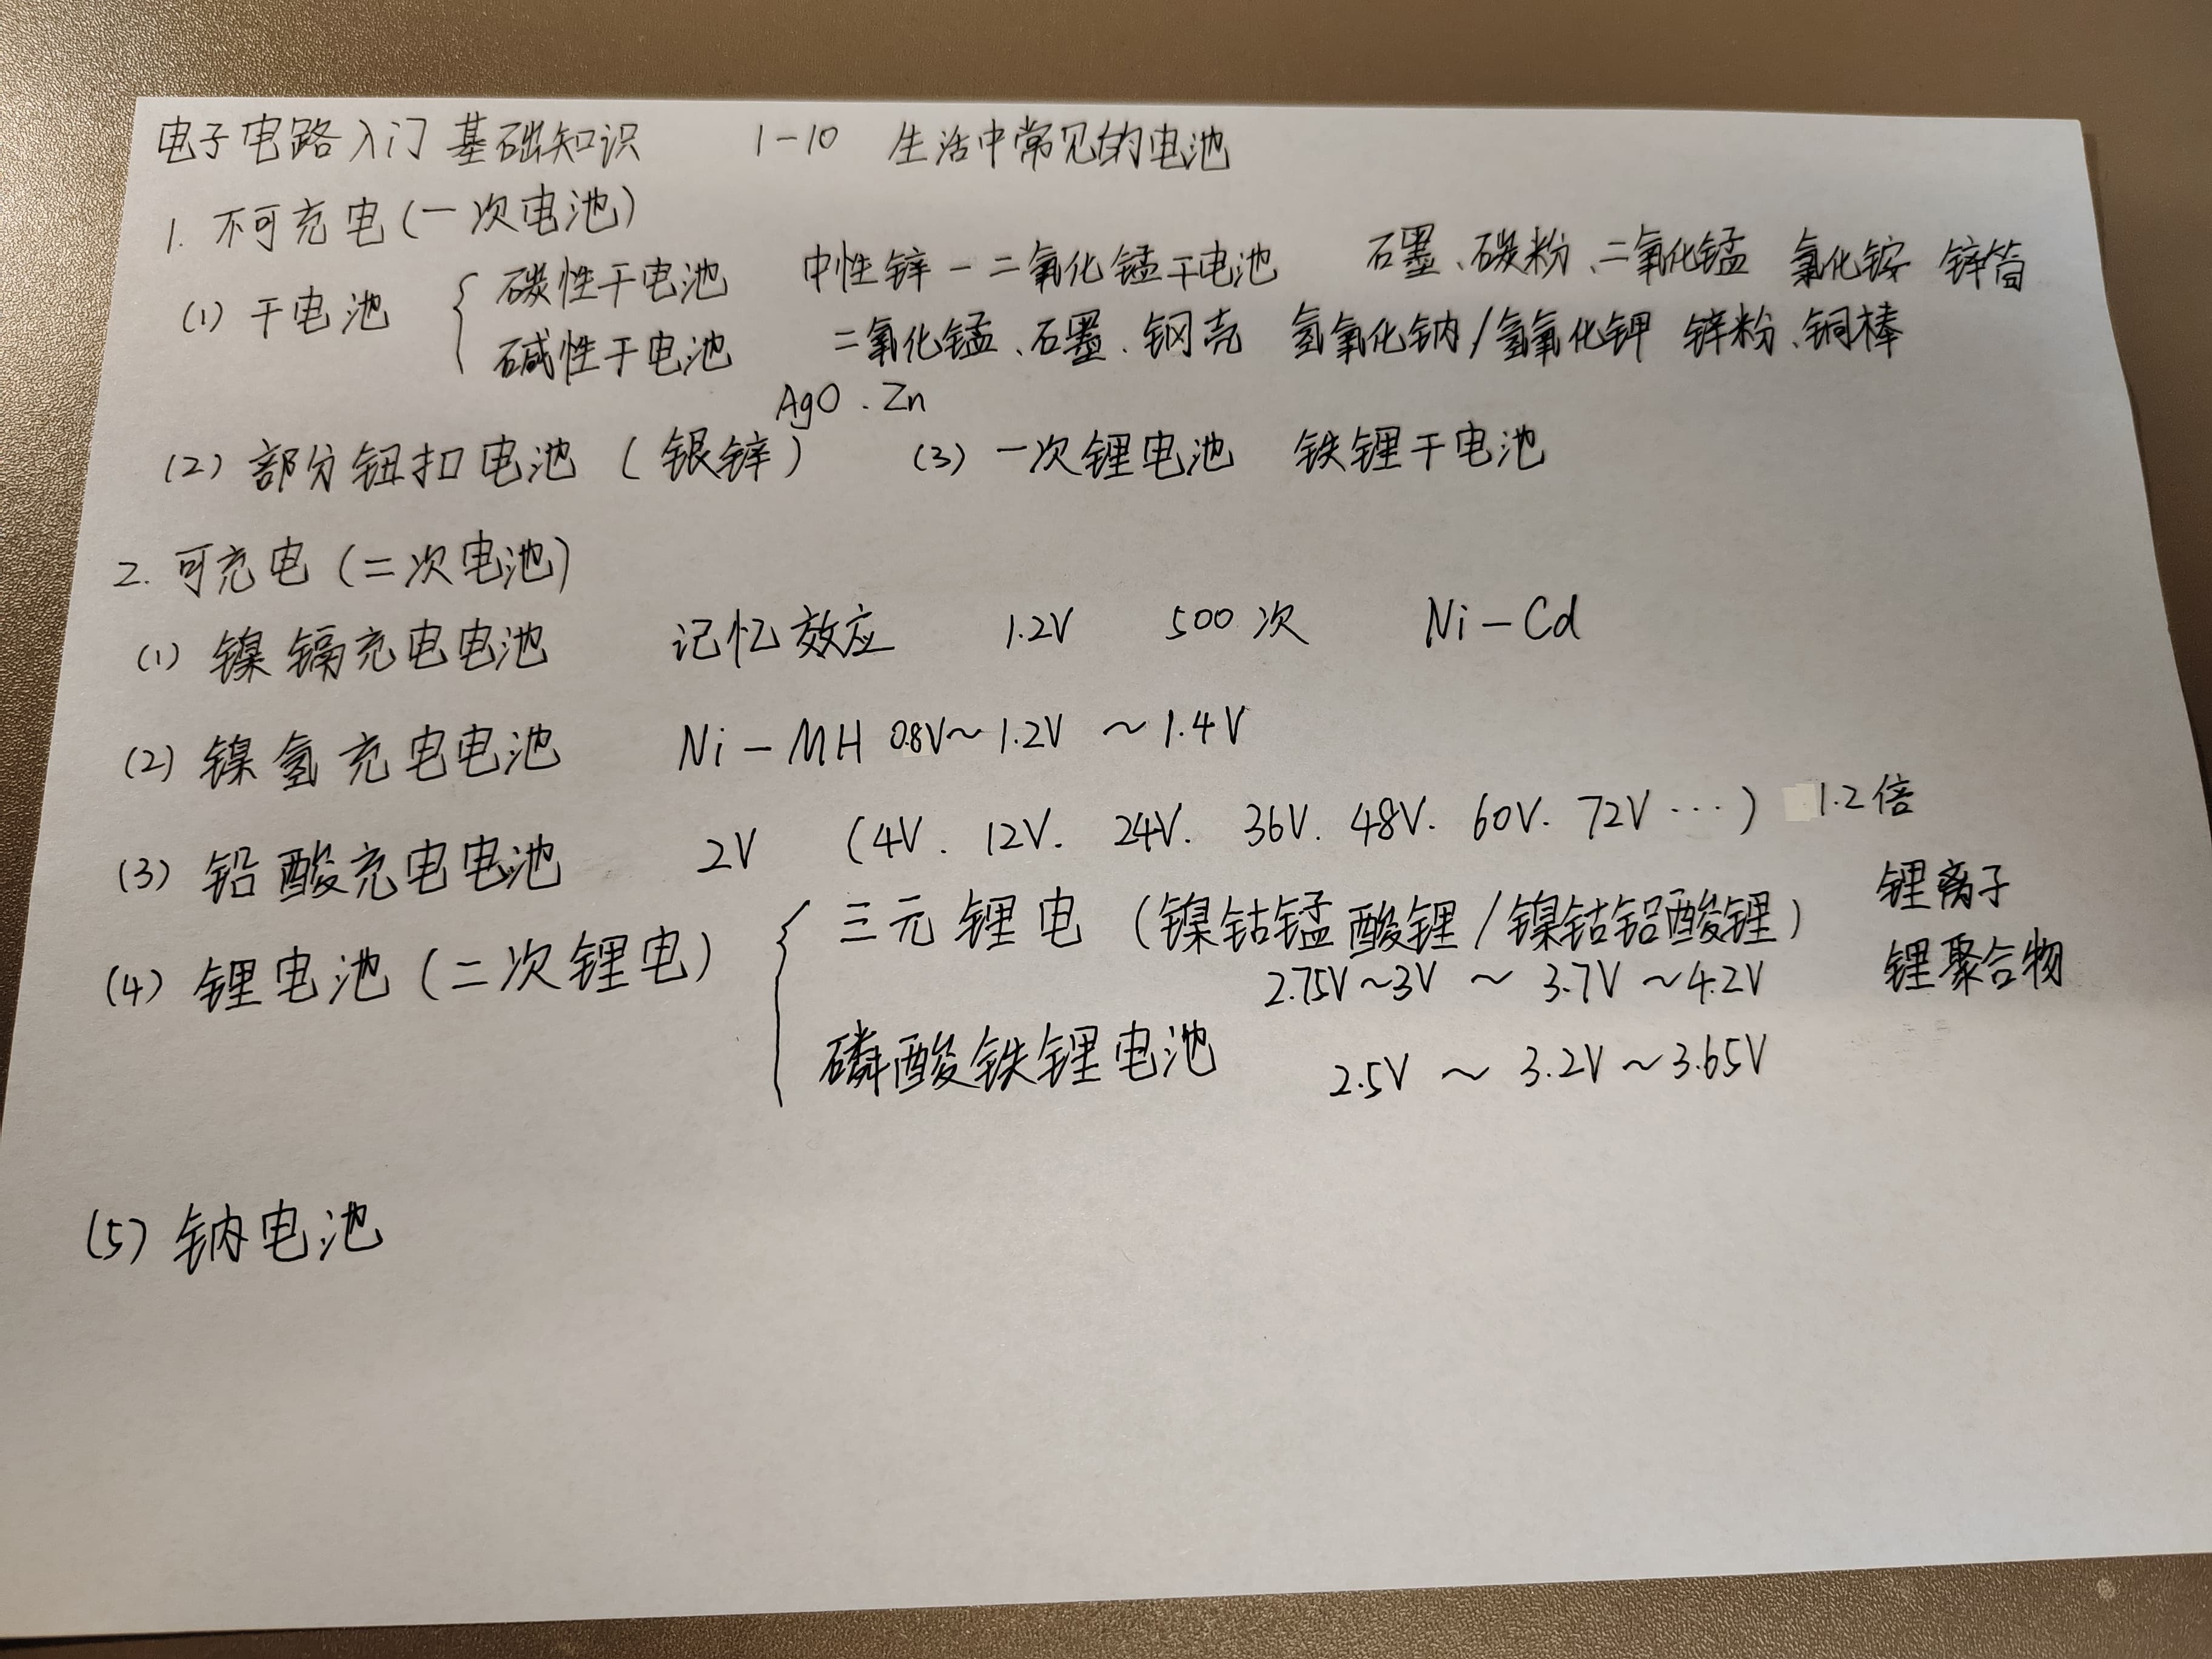 电子电路入门 基础知识 1-10 生活中常见的电池
1. 不可充电(一次电池)
(1) 干电池 { 碳性干电池 中性锌-二氧化锰干电池 石墨、碳粉、二氧化锰 氯化铵 锌筒
碱性干电池 二氧化锰、石墨、钢壳 氢氧化钠/氢氧化钾 锌粉、铜棒
AgO . Zn
(2) 部分钮扣电池 (银锌) (3) 一次锂电池 铁锂干电池
2. 可充电(二次电池)
(1) 镍镉充电电池 记忆效应 1.2V 500次 Ni-Cd
(2) 镍氢充电电池 Ni-MH 0.8V~1.2V ~1.4V
(3) 铅酸充电电池 2V (4V. 12V. 24V. 36V. 48V. 60V. 72V…) 1.2倍
(4) 锂电池(二次锂电) { 三元锂电 (镍钴锰酸锂/镍钴铝酸锂) 锂离子
2.75V~3V ~ 3.7V ~4.2V 锂聚合物
磷酸铁锂电池 2.5V ~ 3.2V ~3.65V
(5) 钠电池